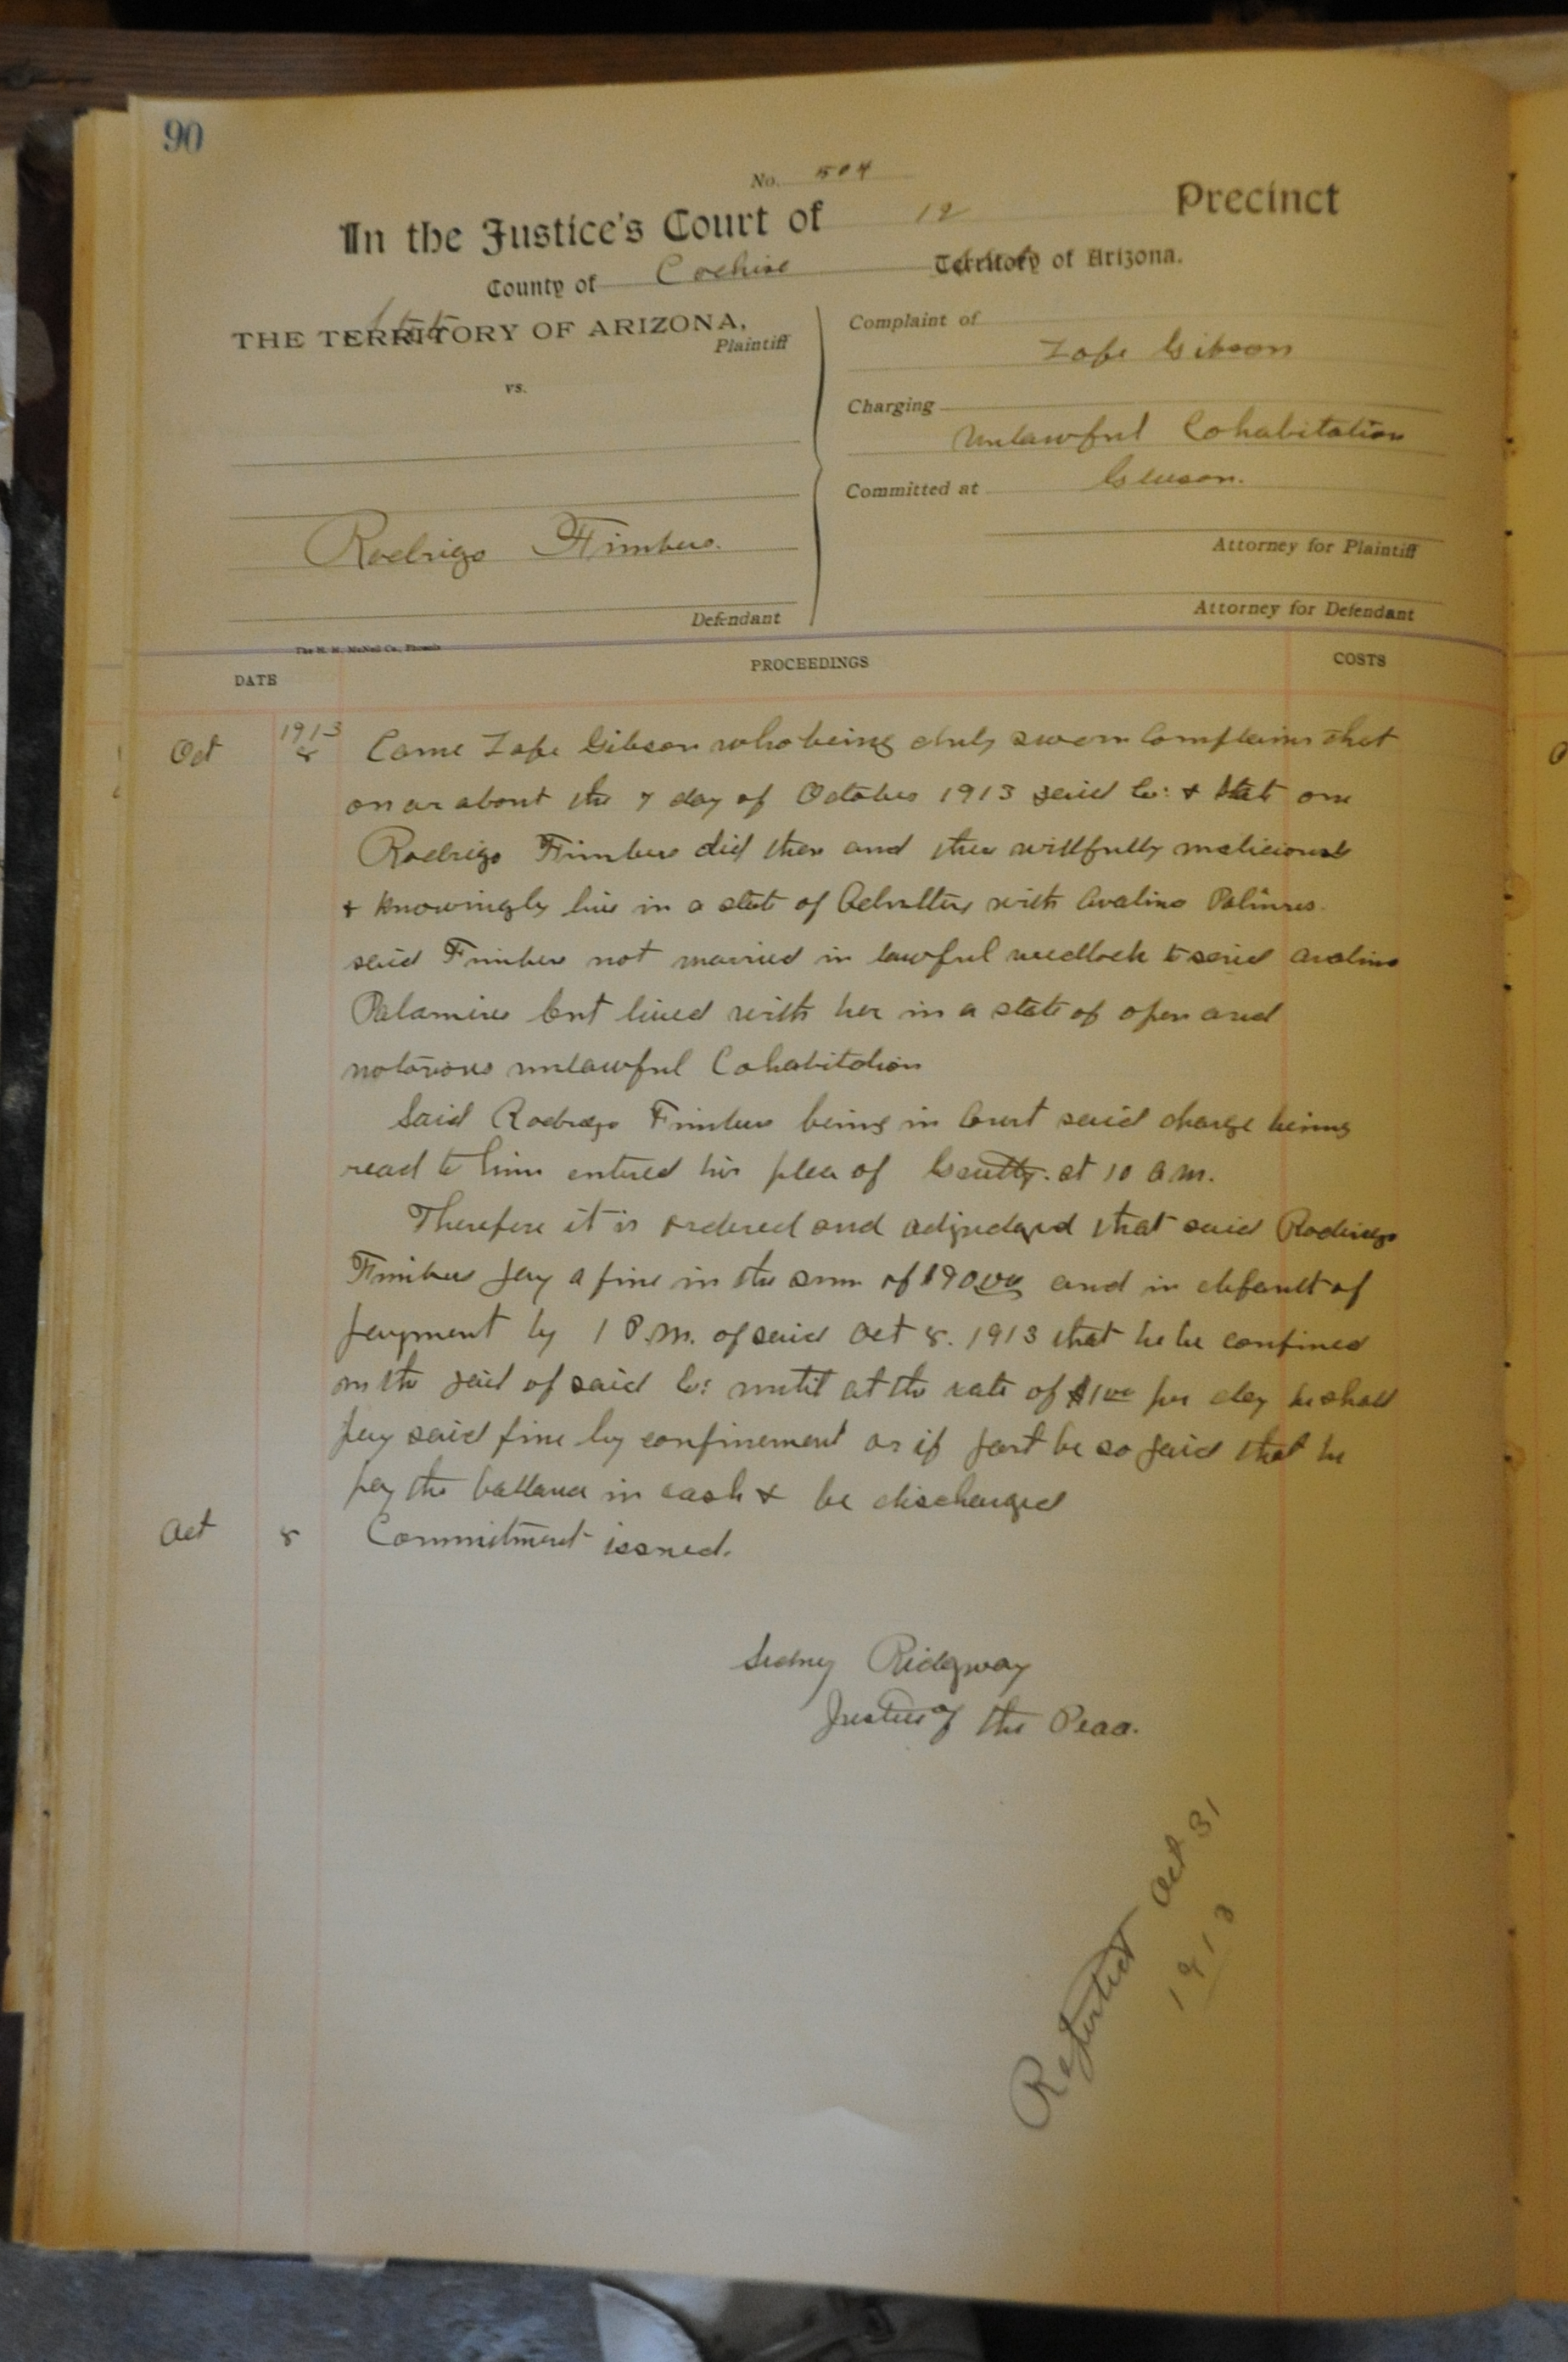 90
No. 504
In the Justice's Court of 12 Precinct
County of Cochise State Territory of Arizona.
State
THE TERRITORY OF ARIZONA,
Plaintiff
vs.
Rodrigo Fimbres.
Defendant
Complaint of
Lafe Gibson
Charging
Unlawful Cohabitation
Committed at Gleeson.
Attorney for Plaintiff
Attorney for Defendant
The H. H. McNeil Co., Phoenix
DATE PROCEEDINGS COSTS
1913
Oct 8 Came Lafe Gibson who being duly sworn Complains that
on or about the 7 day of October 1913 said Co: & State one
Rodrigo Fimbres did then and there willfully maliciously
& knowingly live in a state of Adultery with Avalino
said Fimbres not married in lawful wedlock to said Avalino
Palamires but lived with her in a state of open and
notorious unlawful Cohabitation
Said Rodrigo Fimbres being in Court said charge being
read to him entered his plea of Guilty. at 10 a.m.
Therefore it is ordered and adjudged that said Rodrigo
Fimbres pay a fine in the sum of $90.00 and in default of
payment by 1 P.M. of said Oct 8. 1913 that he be confined
in the jail of said Co: until at the rate of $1.00 per day he shall
pay said fine by confinement or if part be so paid that he
pay the ballance in cash & be discharged
Oct 8 Commitment issued.
Sidney Ridgway
Justice of the Peace.
Reported Oct 31
1913